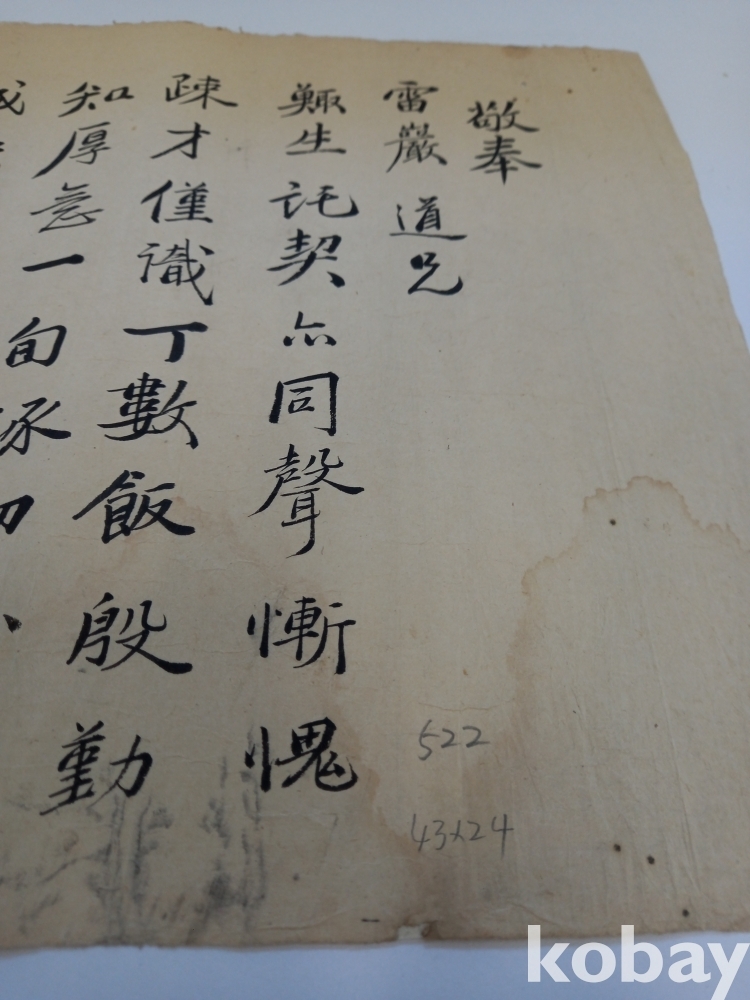 敬奉
雷巖道兄
鯫生託契亦同聲慚愧
疎才僅識丁數飯殷勤
知厚意一旬
522
43x24
kobay